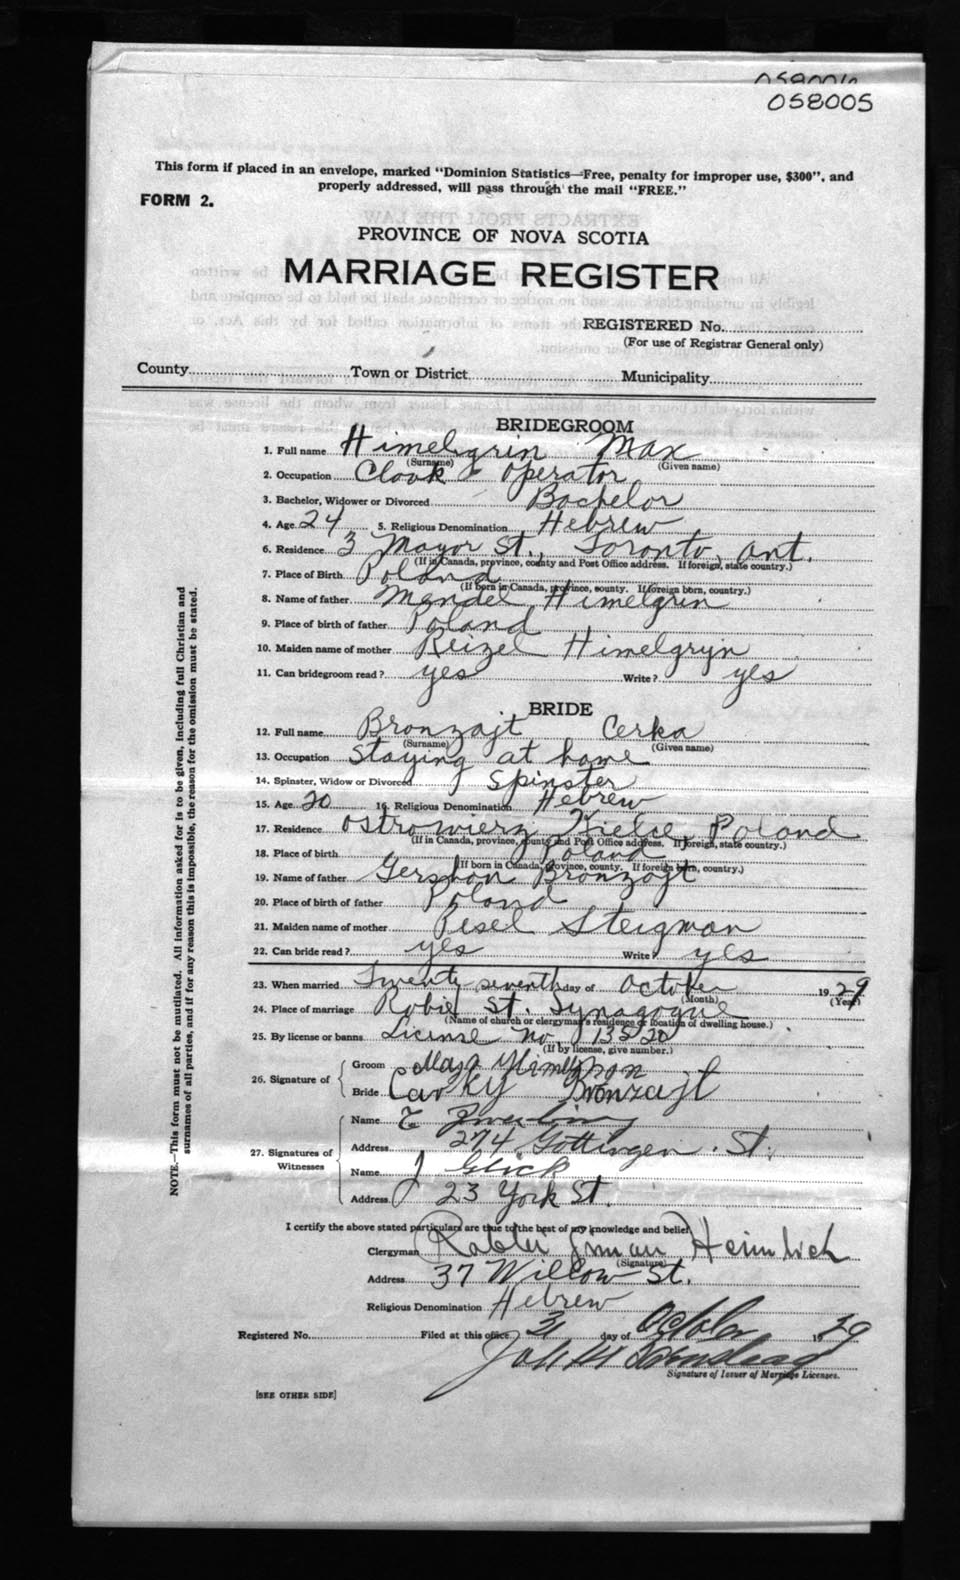 058005
This form if placed in an envelope, marked "Dominion Statistics—Free, penalty for improper use, $300", and
properly addressed, will pass through the mail "FREE."
FORM 2.
PROVINCE OF NOVA SCOTIA
MARRIAGE REGISTER
REGISTERED No.
(For use of Registrar General only)
County Town or District Municipality
BRIDEGROOM
1. Full name Himelgrin Max
(Surname) (Given name)
2. Occupation Cloak operator
3. Bachelor, Widower or Divorced Bachelor
4. Age 24 5. Religious Denomination Hebrew
6. Residence 3 Mayor St., Toronto, Ont.
(If in Canada, province, county and Post Office address. If foreign, state country.)
7. Place of Birth Poland
(If born in Canada, province, county. If foreign born, country.)
8. Name of father Mendel Himelgrin
9. Place of birth of father Poland
10. Maiden name of mother Reizel Himelgryn
11. Can bridegroom read? yes Write? yes
BRIDE
12. Full name Bronzajt Cerka
(Surname) (Given name)
13. Occupation Staying at home
14. Spinster, Widow or Divorced Spinster
15. Age 20 16. Religious Denomination Hebrew
17. Residence Ostrowierz Kielce, Poland
(If in Canada, province, county and Post Office address. If foreign, state country.)
18. Place of birth Poland
(If born in Canada, province, county. If foreign born, country.)
19. Name of father Gershon Bronzajt
20. Place of birth of father Poland
21. Maiden name of mother Pesel Steigman
22. Can bride read? yes Write yes
23. When married Twenty seventh day of October 1929
(Month) (Year)
24. Place of marriage Robie St. Synagogue
(Name of church or clergyman's residence or location of dwelling house.)
25. By license or banns License no. 13520
(If by license, give number.)
26. Signature of Groom
Bride Carky Bronzajt
27. Signatures of Witnesses Name
Address 274 Gottingen St.
Name J Glick
Address 23 York St.
I certify the above stated particulars are true to the best of my knowledge and belief
Clergyman Rabbi Heimlich
(Signature)
Address 37 Willow St.
Religious Denomination Hebrew
Registered No. Filed at this office 31 day of October 1929
Signature of Issuer of Marriage Licenses.
[SEE OTHER SIDE]
NOTE.—This form must not be mutilated. All information asked for is to be given, including full Christian and
surnames of all parties, and if for any reason this is impossible, the reason for the omission must be stated.